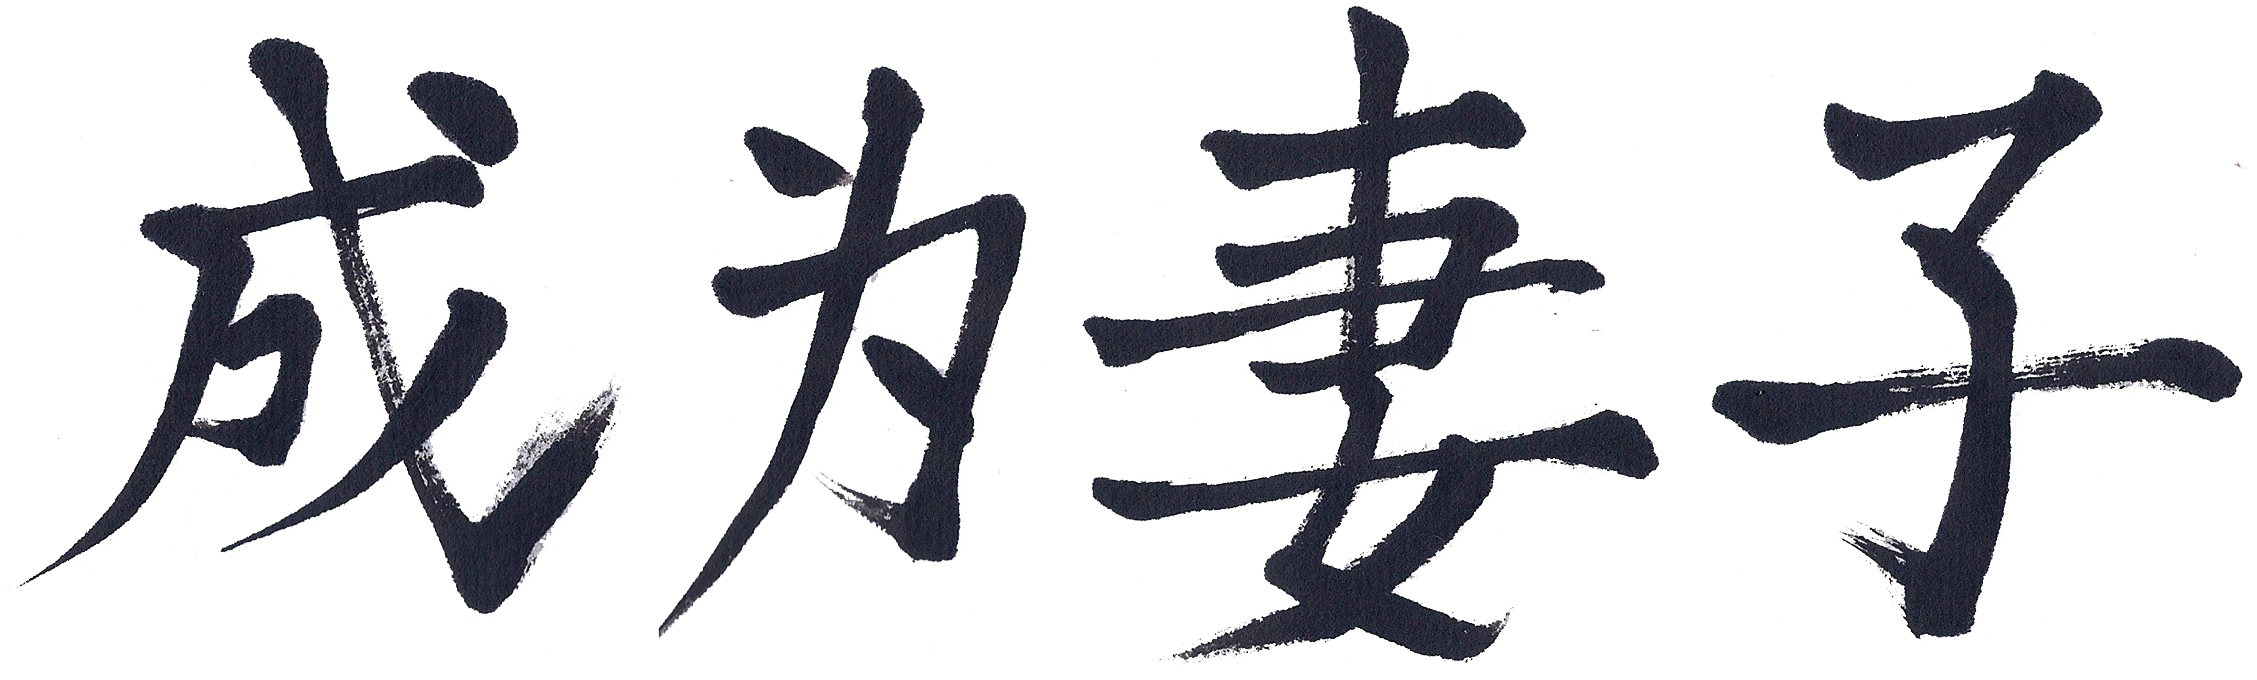 成为妻子